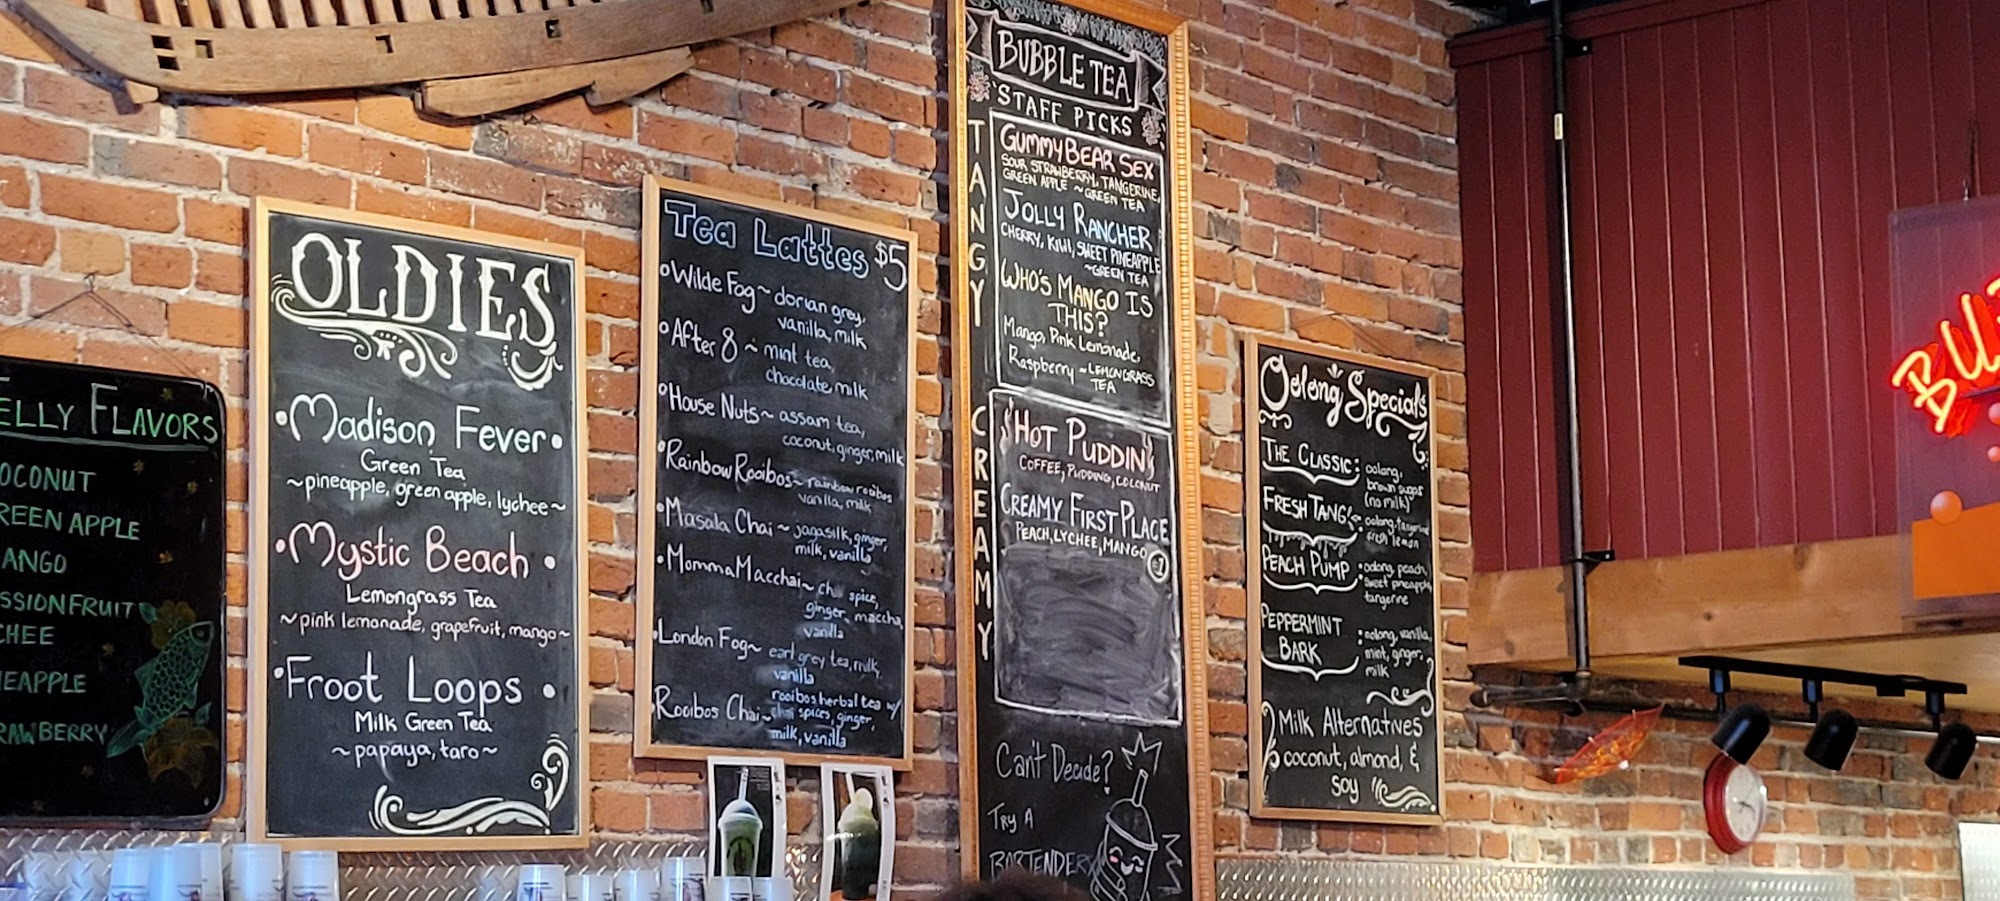 ELLY FLAVORS
OCONUT
REEN APPLE
ANGO
SSIONFRUIT
CHEE
EAPPLE
RAWBERRY
OLDIES
•Madison Fever•
Green Tea
~pineapple, green apple, lychee~
•Mystic Beach •
Lemongrass Tea
~pink lemonade, grapefruit, mango~
•Froot Loops •
Milk Green Tea
~papaya, taro~
Tea Lattes $5
•Wilde Fog~ dorian grey,
vanilla, milk
•After 8 ~ mint tea,
chocolate, milk
•House Nuts~ assam tea,
coconut, ginger, milk
•Rainbow Rooibos~ rainbow rooibos
vanilla, milk
•Masala Chai ~ jagasilk, ginger,
milk, vanilla
•Momma Macchai~ chai spice,
ginger, maccha,
vanilla
•London Fog~ earl grey tea, milk,
vanilla
•Rooibos Chai~ rooibos herbal tea w/
chai spices, ginger,
milk, vanilla
BUBBLE TEA
STAFF PICKS
TANGY
GUMMY BEAR SEX
SOUR STRAWBERRY, TANGERINE,
GREEN APPLE ~ GREEN TEA
JOLLY RANCHER
CHERRY, KIWI, SWEET PINEAPPLE
~GREEN TEA
WHO'S MANGO IS
THIS?
Mango, Pink Lemonade,
Raspberry ~LEMONGRASS
TEA
CREAMY
HOT PUDDIN'
COFFEE, PUDDING, COCONUT
CREAMY FIRST PLACE
PEACH, LYCHEE, MANGO
Can't Decide?
TRY A
BARTENDERY
Oolong Specials
THE CLASSIC: oolong,
brown sugar
(no milk)
FRESH TANG!: oolong, tangerine
fresh lemon
PEACH PUMP :oolong, peach,
sweet pineapple,
tangerine
PEPPERMINT
BARK :oolong, vanilla,
mint, ginger,
milk
Milk Alternatives
coconut, almond, &
soy
BU